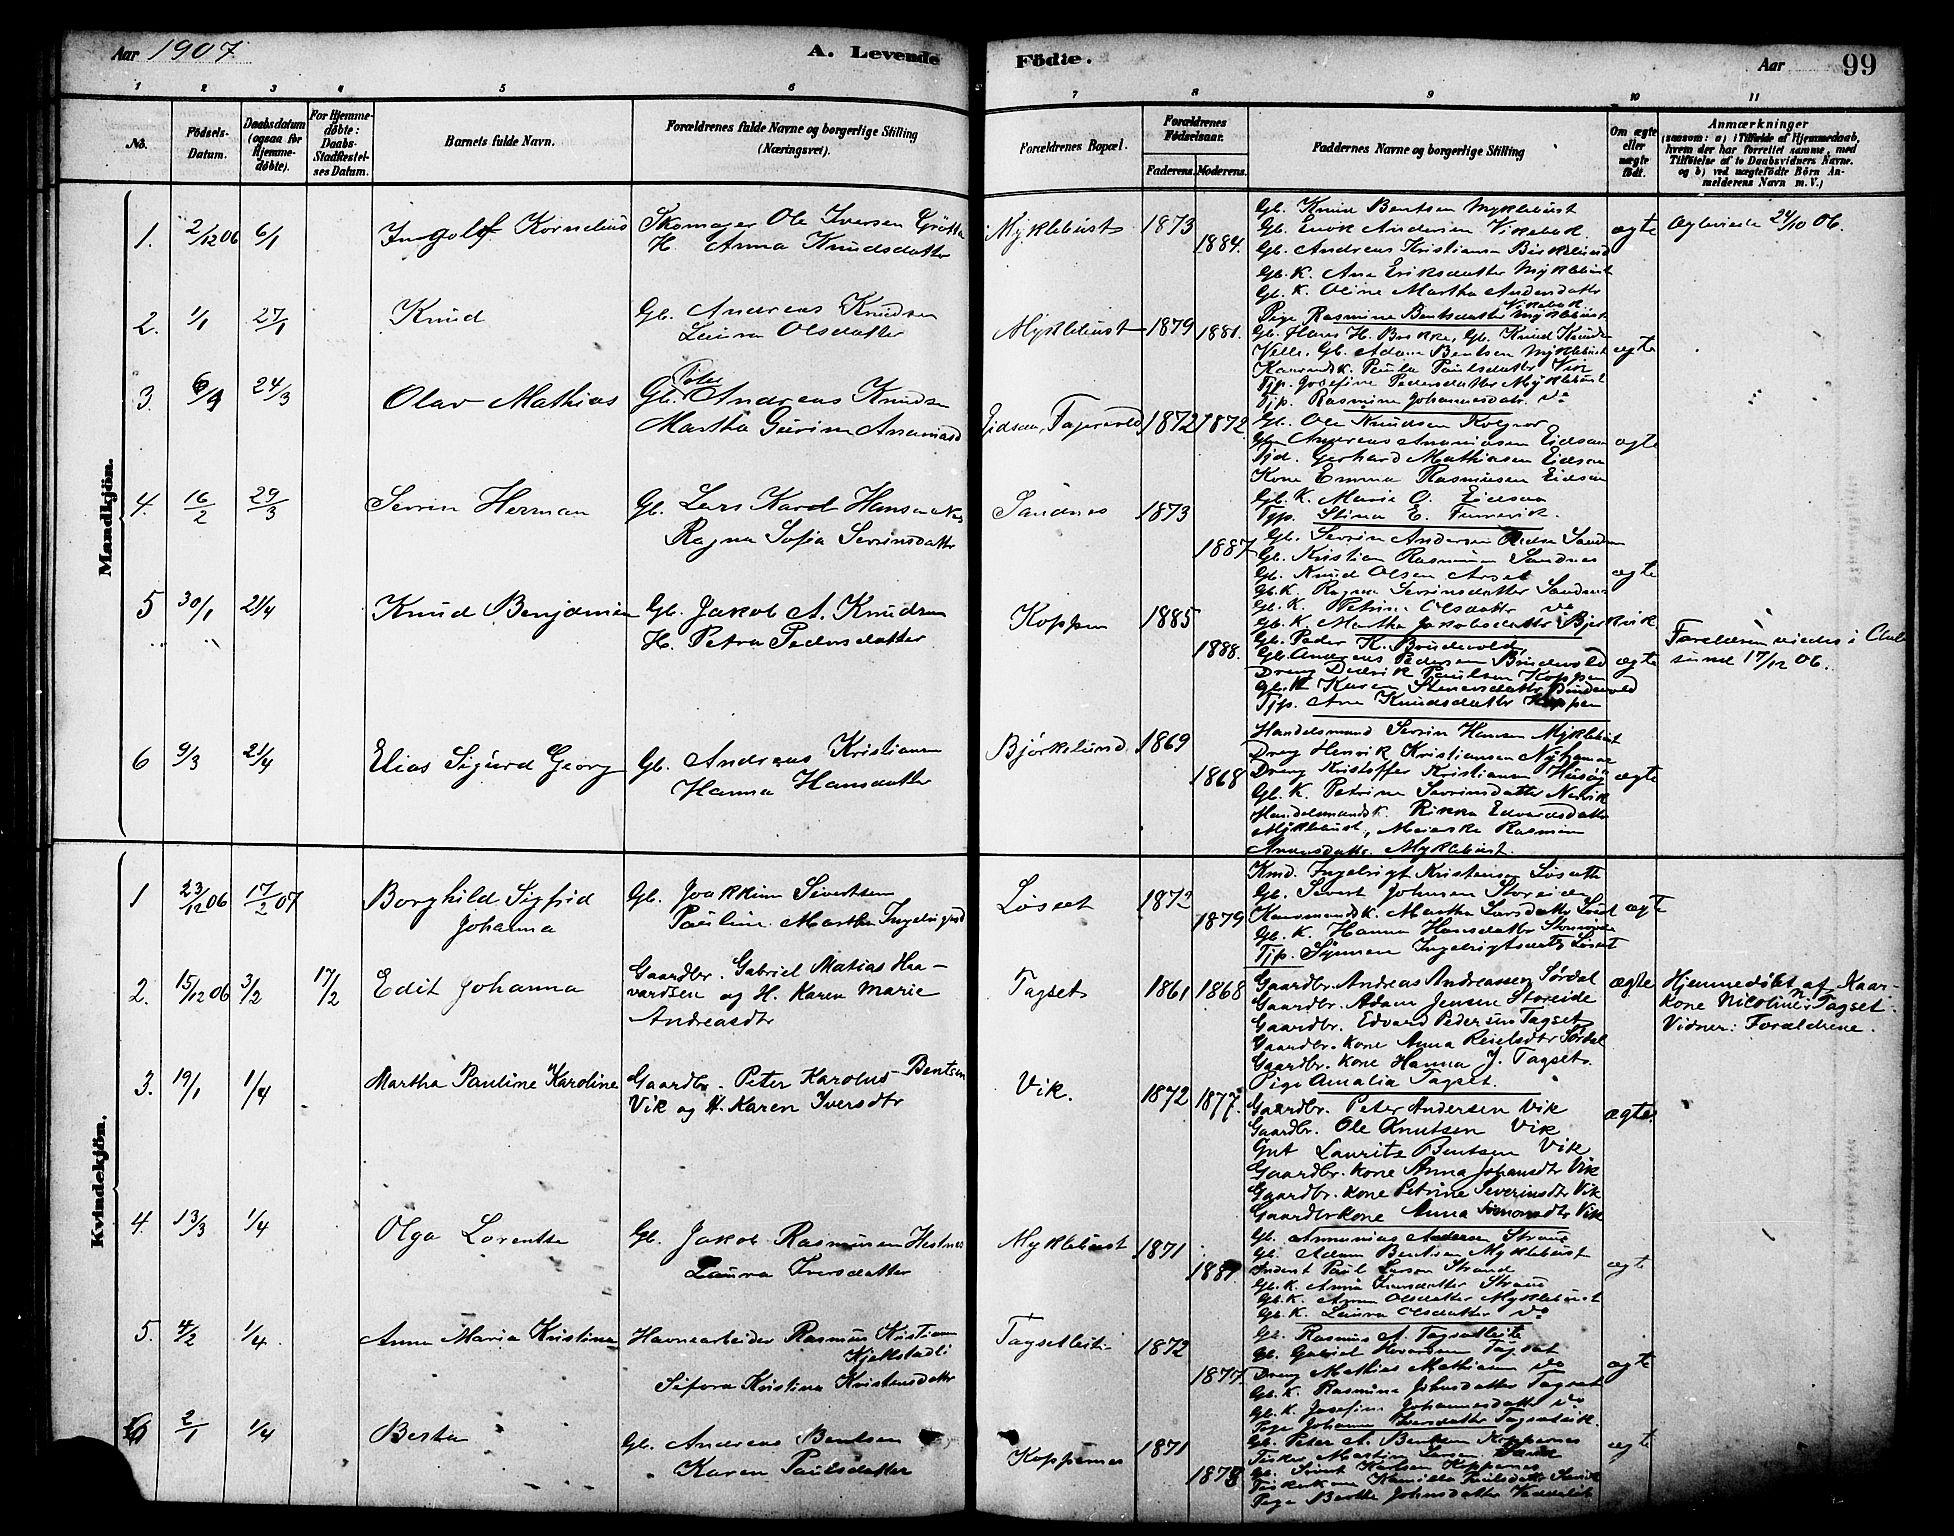 Aar 1907
A. Levende
Fødte.
Aar
99
1 2 3 4 5 6 7 8 9 10 11
No.
Fødsels-Datum.
Daabsdatum (ogsaa for Hjemme-døbte).
For Hjemme-døbte: Daabs-Stadfæstel-ses Datum.
Barnets fulde Navn.
Forældrenes fulde Navne og borgerlige Stilling (Næringsvei).
Forældrenes Bopæl.
Forældrenes Fødselsaar.
Faderens. Moderens.
Faddernes Navne og borgerlige Stilling
Om ægte eller uægte født.
Anmærkninger
(saasom: a) i Tilfælde af Hjemmedaab,
hvem der har forrettet samme, med
Tilføielse af to Daabsvidners Navne.
og b) ved uægtefødte Børn An-
melderens Navn m. V.)
Mandkjøn.
1. 2/12 06 6/1 Ingolf Kornelius Skomager Ole Iversen Grøtta
H. Anna Knudsdatter
Myklebust 1873 1884.
Gb. Knud Bentsen Myklebust
Gb. Enok Andersen Vikebak
Gb. Andreas Kristiansen Bjørkelund
Gb. K. Ane Eriksdatter Myklebust
Gb. K. Oline Martha Andersdatter Vikebak
Pige Rasmine Bentsdatter Myklebust
ægte Ægteviede 24/10 06.
2. 1/1 27/1 Knud Gb. Andreas Knudsen
Laura Olsdatter
Myklebust 1879 1881.
Gb. Hans H. Bakke, Gb. Knud Knudsen
Gb. Adam Bentsen Myklebust
Kaarmandsk. Paula Paulsdatter Vik
Tjp. Josefine Pedersdatter Myklebust
Tjp. Rasmine Johannesdatr. do
ægte
3. 24/3 Olav Mathias Gb. Peter Andreas Knudsen
Martha Gurine Ananiasd
Eidsaa, Fagervold 1872 1872.
Gb. Ole Knudsen
Gbm Andreas Ananiasen Eidsaa
Tjd. Gerhard Mathiasen Eidsaa
Kone Emma Rasmusen Eidsaa
Gb. K. Marie O. Eidsaa
Tjp. Stina E.
ægte
4. 16/2 29/3 Severin Herman Gb. Lars Karol Hansen Nes
Ragna Sofia Severinsdatter
Sandnes 1873 1887
Gb. Severin Andersen Sandnes
Gb. Kristian Rasmusen Sandnes
Gb. Knud Olsen Aaset
Gb. K. Ragna Severinsdatter Sandnes
Gb. K. Petrine Olsdatter do
Gb. K. Martha Jakobsdatter Bjerkvik
ægte
5 30/1 21/4 Knud Benjamin Gb. Jakob A. Knudsen
H. Petra Pedersdatter
Koppen 1885 1888.
Gb. Peder K. Brudevold
Gb. Andreas Pedersen Brudevold
Dreng Didrik Paulsen Koppen
Gb. K Karen Steneresdatter Brudevold
Tjp. Ane Knudsdatter Koppen
ægte Forældrene viedes i Aale
sund 17/12 06.
6 9/3 21/4 Elias Sigurd Georg Gb. Andreas Kristiansen
Hanna Hansdatter
Bjørkelund 1869 1868
Handelsmand Severin Hansen Myklebust
Dreng Henrik Kristiansen Nyhamar
Dreng Kristoffer Kristiansen Husøy
Gb. K. Petrine Severinsdatter Nervik
Handelsmandsk. Rikka Edvardsdatter
Myklebust, Meierske Rasmine
Andersdatter Myklebust.
ægte
Kvindekjøn.
1 23/12 06 17/2 07 Borghild Sigfrid
Johanna
Gb. Joakkim Sivertsen
Pauline Martha Ingebrigtsd
Løset 1872 1879
Kmd. Ingebrigt Kristensen Løseth
Gb. Sivert Johnsen Storeide
Kaarmandsk. Martha Larsdatter Løset
Gb. K. Hanna Hansdatter Storeide
Tjp. Synneva Ingebrigtsdatter Løset
ægte
2. 15/12 06 3/2 17/2 Edit Johanna Gaardbr. Gabriel Matias Haa-
vardsen og H. Karen Marie
Andreasdtr
Tagset 1861 1868
Gaardbr. Andreas Andreassen Sørdal
Gaardbr. Adam Jensen Storeide
Gaardbr. Edvard Pedersen Tagset
Gaardbr. kone Anna Reielsdtr Sørdal
Gaardbr. kone Hanna J. Tagset
Pige Amalia Tagset.
ægte Hjemmedøbt af Kaar-
kone Nicoline N. Tagset.
Vidner: Forældrene.
3. 19/1 1/4 Martha Pauline Karoline Gaardbr. Peter Karolus Bentsen
Vik og H. Karen Iversdtr
Vik. 1872 1877.
Gaardbr. Peter Andersen Vik
Gaardbr. Ole Knutsen Vik
Gut Lauritz Bentsen Vik
Gaardbr. kone Anna Johansdtr Vik
Gaardbr. kone Petrine Severinsdtr Vik
Gaardbrkone Anna Simonsdtr Vik
ægte
4. 13/3 1/4 Olga Lorentse Gb. Jakob Rasmusen Hestnes
Laura Iversdatter
Myklebust 1871 1881.
Gb. Ananias Andersen Strand
Gb. Adam Bentsen Myklebust
Inderst Paul Larsen Strand
Gb. K. Anna Iversdatter Strand
Gb. K. Anna Olsdatter Myklebust
Gb. K. Laura Olsdatter do
ægte
5. 4/2 1/4 Anna Maria Kristina Havnearbeider Rasmus Kristiansen
Kjelstadli
Sefora Kristina Kristensdatter
Tagsetleiti 1872 1877
Gb. Rasmus A. Tagsetleite
Gb. Gabriel Hovardsen Tagset
Dreng Mathias Mathiasen do
Gb. K. Rasmina Johnsdatter Tagset
Gb. K. Josefine Johannesdatter do
Pige Johanne Iversdatter Tagsetleit.
ægte
6 2/1 1/4 Berta Gb. Andreas Bentsen
Karen Paulsdatter
Koppernes 1871 1878
Gb. Peter A. Bentsen Koppernes
Fisker Martin Larsen
Gb. Sivert Karlsen Koppernes
Fiskerkone Kamilla Paulsdatter
Pige Berthe Johnsdatter
ægte